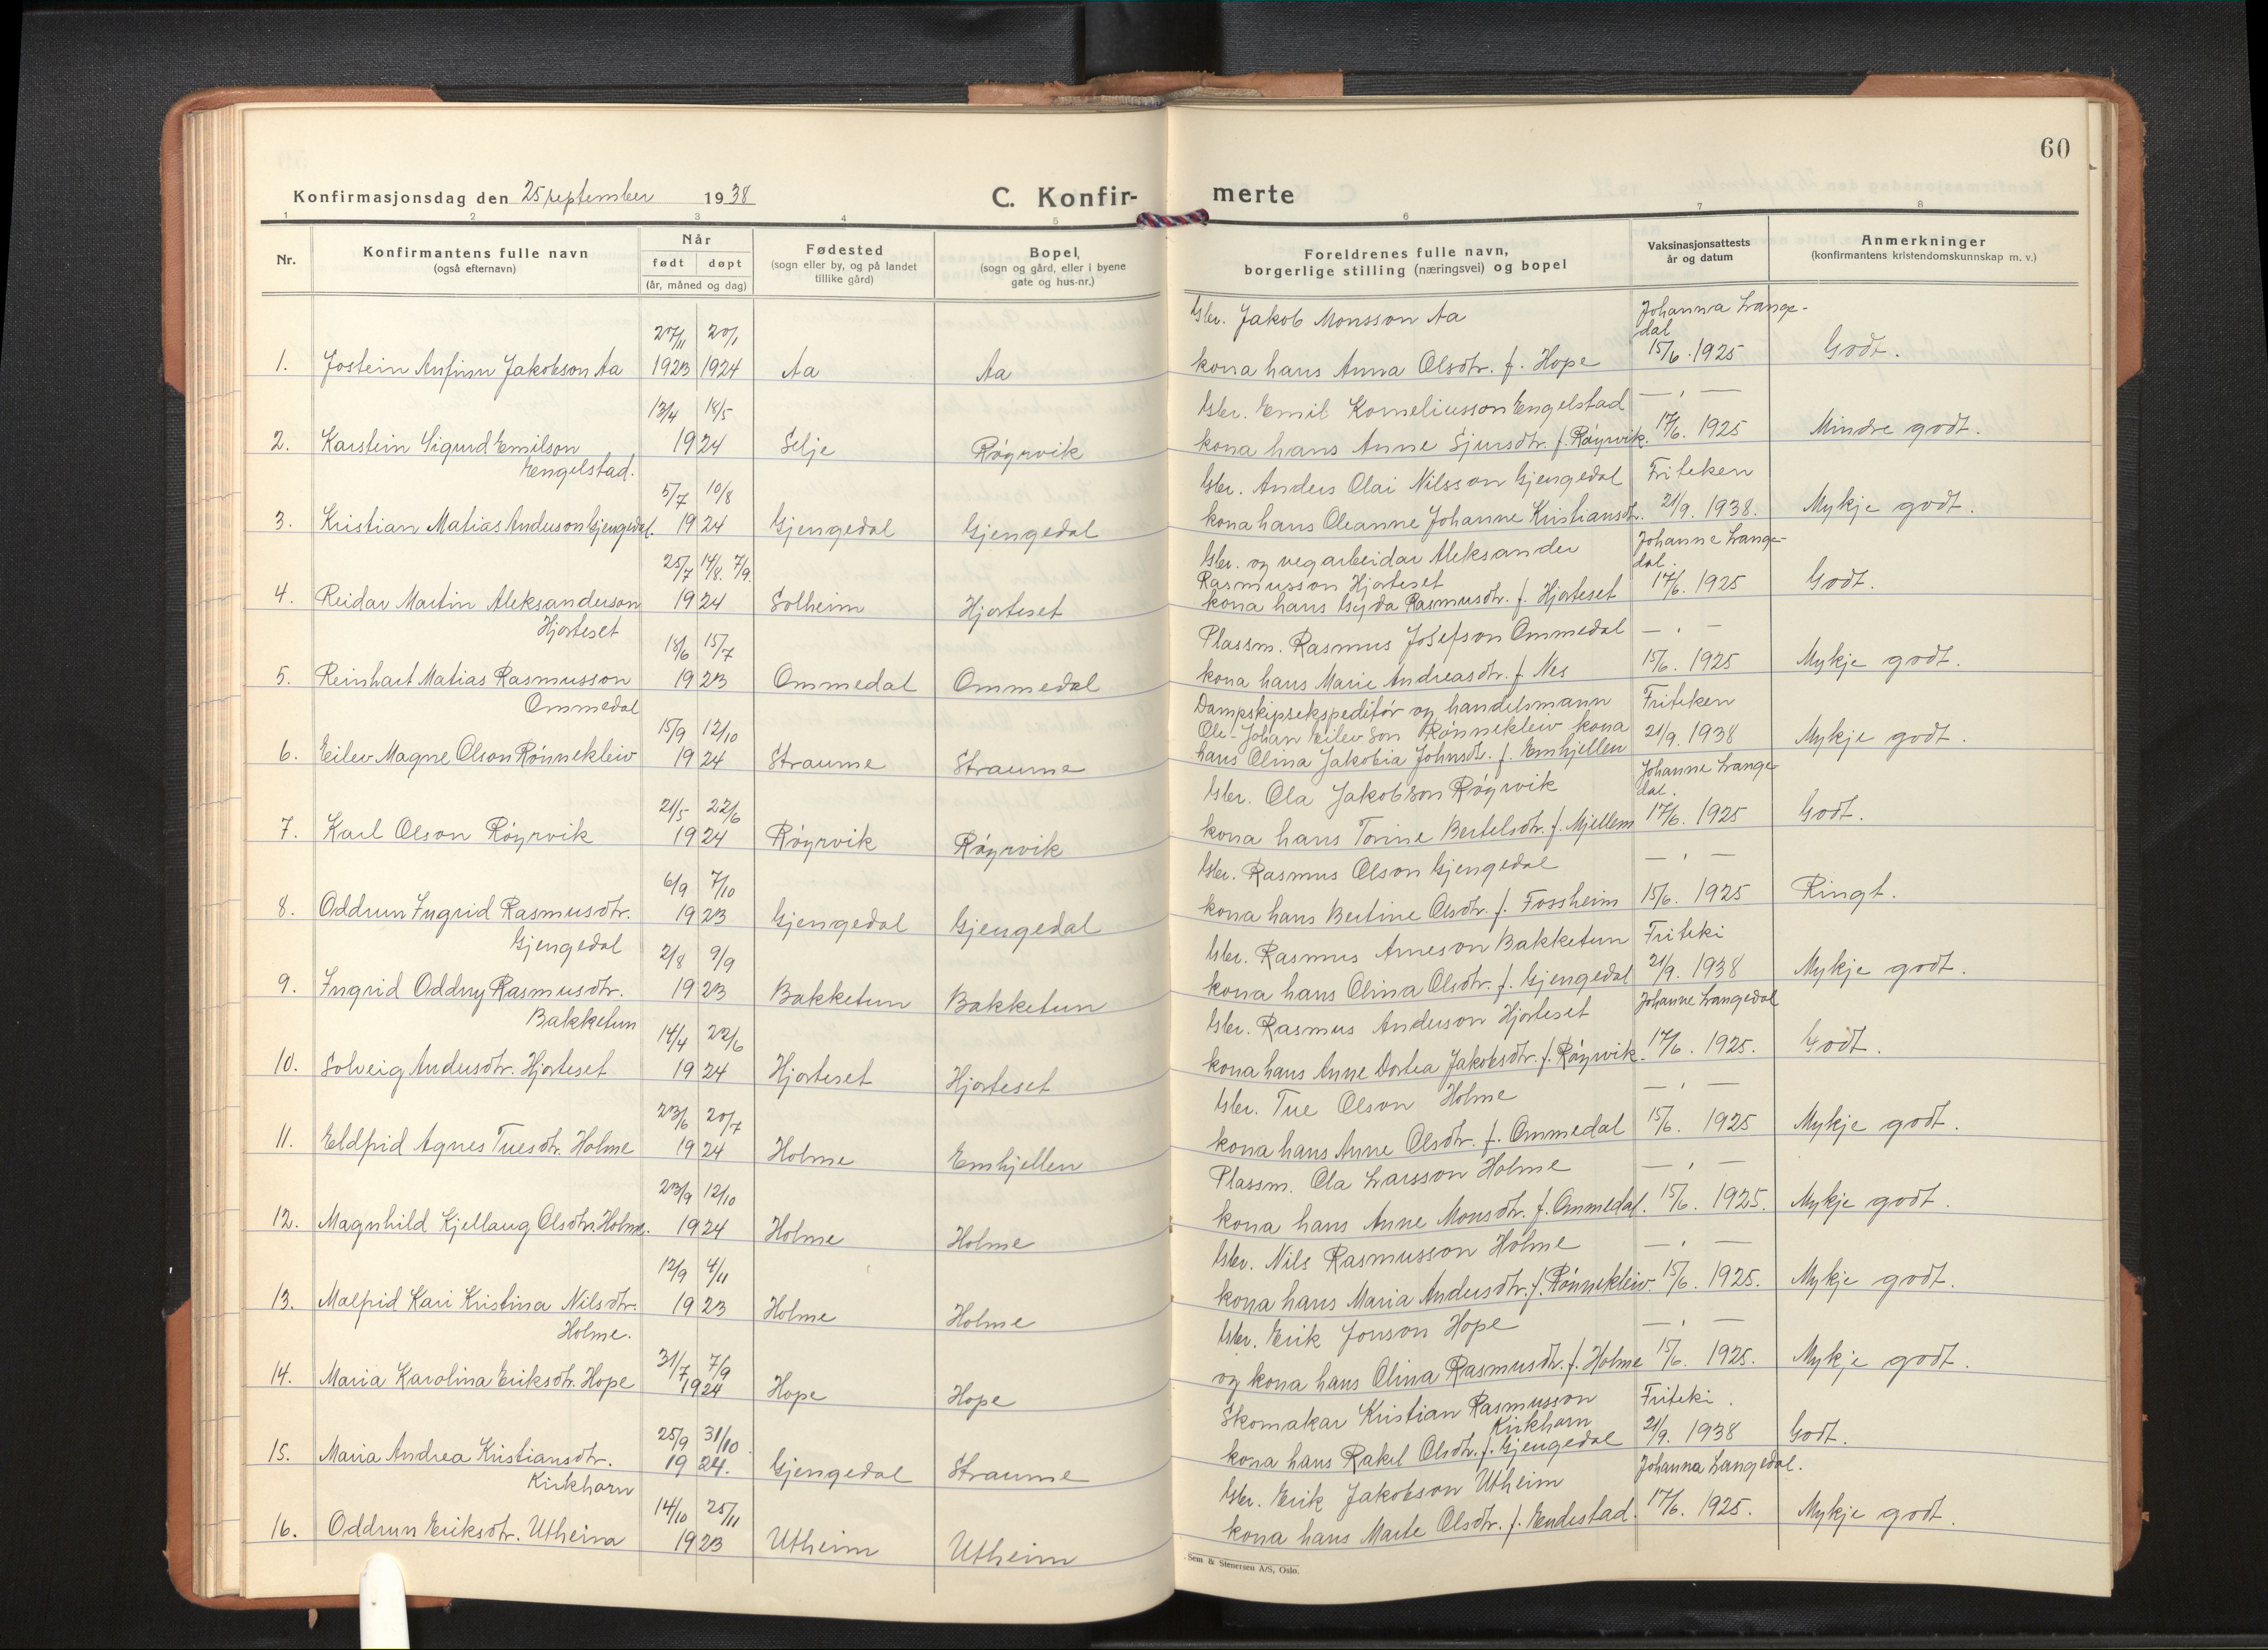 60
Konfirmasjonsdag den 25 september 1938
C. Konfir-
merte
1 2 3 4 5 6 7 8
Nr.
Konfirmantens fulle navn
(også efternavn)
Når
født døpt
(år, måned og dag)
Fødested
(sogn eller by, og på landet
tillike gård)
Bopel,
(sogn og gård, eller i byene
gate og hus-nr.)
Foreldrenes fulle navn,
borgerlige stilling (næringsvei) og bopel
Vaksinasjonsattests
år og datum
Anmerkninger
(konfirmantens kristendomskunnskap m. v.)
Gbr. Jakob Monsson Aa Johanna Lange-
dal
1. Jostein Anfinn Jakobson Aa 1923 20/1 1924 Aa Aa kona hans Anna Olsdtr. f. Hope 15/6. 1925 Godt.
13/4 18/5 Gbr. Emil Korneliusson Engelstad — " —
2. Karstein Sigurd Emilson 1924 Selje Røyrvik kona hans Anne Sjursdtr. f. Røyrvik. 17/6. 1925 Mindre godt.
Engelstad.
5/7 10/8 Gbr. Anders Olai Nilsson Gjengedal Friteken
3. Kristian Matias Anderson Gjengedal. 1924 Gjengedal Gjengedal kona hans Oleanne Johanne Kristiansdtr. 21/9. 1938. Mykje godt.
25/7 14/8. 7/9. Gbr. og vegarbeidar Aleksander Johanne Lange-
Rasmusson Hjorteset dal.
4. Reidar Martin Aleksanderson 1924 Solheim Hjorteset kona hans Gyda Rasmusdtr. f. Hjorteset 17/6. 1925 Godt.
Hjorteset
18/6 15/7 Plassm. Rasmus Josefson Ommedal — " —
5. Reinhart Matias Rasmusson 1923 Ommedal Ommedal kona hans Marie Andreasdtr. f. Nes 15/6. 1925 Mykje godt.
Ommedal
15/9 12/10 Dampskipsekspeditør og handelsmann Friteken
Ole-Johan Eilevson Rønnekleiv kona
6. Eilev Magne Olson Rønnekleiv 1924 Straume Straume hans Olina Jakobia Johnsdtr. f. Emhjellen 21/9. 1938 Mykje godt.
21/5 22/6 Gbr. Ola Jakobson Røyrvik Johanne Lange-
dal.
7. Karl Olson Røyrvik 1924 Røyrvik Røyrvik kona hans Torine Bertelsdtr. f. Mjellem 17/6. 1925 Godt.
6/9 7/10 Gbr. Rasmus Olson Gjengedal — " —
8. Oddrun Ingrid Rasmusdtr. 1923 Gjengedal Gjengedal kona hans Bertine Olsdtr. f. Fossheim 15/6. 1925 Ringt.
Gjengedal
2/8 9/9 Gbr. Rasmus Arneson Bakketun Friteki
9. Ingrid Oddny Rasmusdtr. 1923 Bakketun Bakketun kona hans Olina Olsdtr. f. Gjengedal 21/9. 1938 Mykje godt.
Bakketun
14/4 22/6 Gbr. Rasmus Anderson Hjorteset Johanne Langedal
10. Solveig Andersdtr. Hjorteset 1924 Hjorteset Hjorteset kona hans Anne Dortea Jakobsdtr. f. Røyrvik. 17/6. 1925. Godt.
23/6 20/7 Gbr. Tue Olson Holme — " —
11. Eldfrid Agnes Tuesdtr. Holme 1924 Holme Emhjellen kona hans Anne Olsdtr. f. Ommedal 15/6. 1925 Mykje godt.
23/9 12/10 Plassm. Ola Larsson Holme — " —
12. Magnhild Kjellaug Olsdtr. Holme. 1924 Holme Holme kona hans Anne Monsdtr. f. Ommedal. 15/6. 1925. Mykje godt.
12/9 4/11 Gbr. Nils Rasmusson Holme — " —
13. Malfrid Kari Kristina Nilsdtr. 1923 Holme Holme kona hans Maria Andersdtr. f. Rønnekleiv. 15/6. 1925. Mykje godt.
Holme.
31/7 7/9 Gbr. Erik Jonson Hope — " —
14. Maria Karolina Eriksdtr. Hope 1924 Hope Hope og kona hans Olina Rasmusdtr. f. Holme 15/6. 1925. Mykje godt.
25/9 31/10 Skomakar Kristian Rasmusson Friteki.
Kirkhorn
15. Maria Andrea Kristiansdtr. 1924. Gjengedal Straume kona hans Rakel Olsdtr. f. Gjengedal 21/9. 1938 Godt.
Kirkhorn
14/10 25/11 Gbr. Erik Jakobson Utheim Johanna Langedal.
16. Oddrun Eriksdtr. Utheim 1923 Utheim Utheim kona hans Marte Olsdtr. f. Endestad. 17/6. 1925. Mykje godt.
Sem & Stenersen A/S, Oslo.